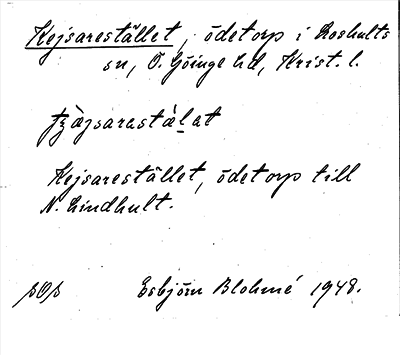 Kejsarestället, ödetorp i Loshults
sn, Ö. Göinge hd, Krist. l.
Kejsarestället, ödetorp till
N. Lindhult.
sOs Esbjörn Blohmé 1948.